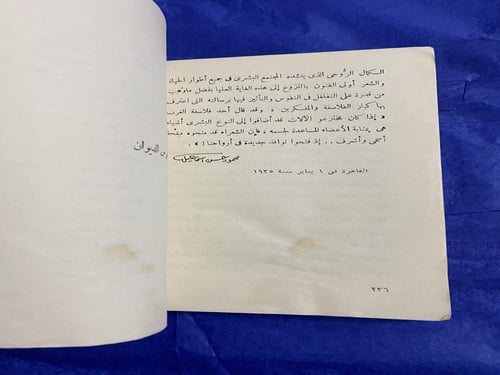 الكمال الروحى الذى ينشده المجتمع البشرى فى جميع أطوار الحياة
والشعر أولى الفنون بالنزوع إلى هذه الغاية العليا بفضل ماوهب
من قدرة على التغلغل فى النفوس والتأثير فيها برسالته التى اعترف
بها كبار الفلاسفة والمفكرين . وقد قال أحد فلاسفة الغرب
« إذا كان مخترعو الآلات قد أضافوا إلى النوع البشرى أشياء
هى بمثابة الأعضاء المساعدة لجسمه ، فإن الشعراء قد منحوه
أسمى وأشرف . . إذ فتحوا نوافذ جديدة فى أرواحنا ! » .
محمود حسن إسماعيل
القاهرة فى ١ يناير سنة ١٩٣٥
٢٣٦
الديوان